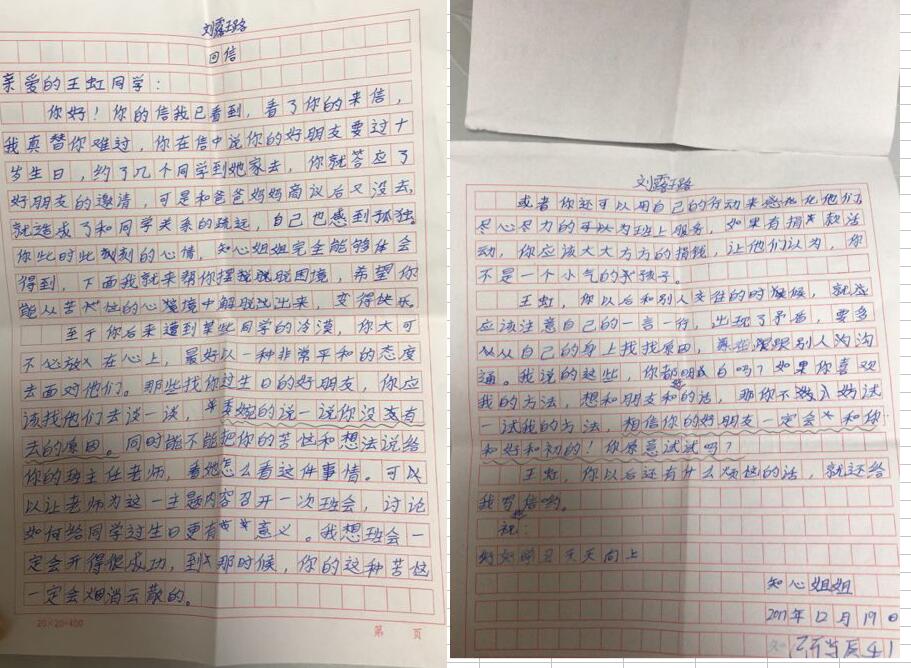 刘露璐
回信
亲爱的王虹同学：
你好！你的信我已看到，看了你的来信，
我真替你难过，你在信中说你的好朋友要过十
岁生日，约了几个同学到她家去，你就答应了
好朋友的邀请，可是和爸爸妈妈商议后又没去，
就造成了和同学关系的疏远，自己也感到孤独。
你此时此刻的心情，知心姐姐完全能够体会
得到，下面我就来帮你摆脱困境，希望你
能从苦恼的心境中解脱出来，变得快乐。
至于你后来遭到某些同学的冷漠，你大可
不必放在心上，最好以一种非常平和的态度
去面对他们。那些找你过生日的好朋友，你应
该找他们去谈一谈，委婉的说一说你没有
去的原因。同时能不能把你的苦恼和想法说给
你的班主任老师，看她怎么看这件事情。可以
以让老师为这一主题内容召开一次班会，讨论
如何给同学过生日更有意义。我想班会一
定会开得很成功，到那时候，你的这种苦恼
一定会烟消云散的。
20×20=400
第 页
刘露璐
或者你还可以用自己的行动来感化他们，
尽心尽力的可以为班上服务，如果有捐款活
动，你应该大大方方的捐钱，让他们认为，你
不是一个小气的孩子。
王虹，你以后和别人交往的时候，就应
应该注意自己的一言一行，出现了矛盾，要多
从自己的身上找找原因，跟别人沟沟
通。我说的这些，你都明白吗？如果你喜欢
我的方法，想和朋友和的话，那你不妨试
一试我的方法，相信你的好朋友一定会和你
和好和初的！你愿意试试吗？
王虹，你以后还有什么烦恼的话，就还给
我写信哟。
祝：
好好学习天天向上
知心姐姐
2017年12月19日